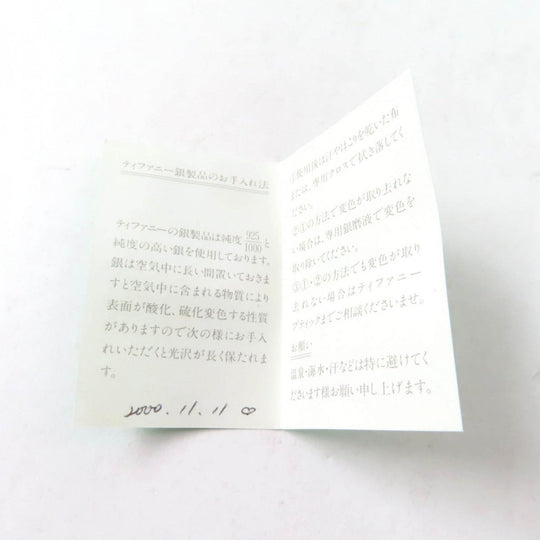 ティファニー銀製品のお手入れ法
ティファニーの銀製品は純度925/1000と
純度の高い銀を使用しております。
銀は空気中に長い間置いておきま
すと空気中に含まれる物質により
表面が酸化、硫化変色する性質
がありますので次の様にお手入
れいただくと光沢が長く保たれま
す。
2000.11.11 ∞
①使用後は汗やほこりを乾いた布
または、専用クロスで拭き落してく
ださい。
②①の方法で変色が取り去れな
い場合は、専用銀磨液で変色を
取り除いてください。
③①・②の方法でも変色が取り
去れない場合はティファニー
ブティックまでご相談くださいませ。
お願い
温泉・海水・汗などは特に避けてく
ださいます様お願い申し上げます。